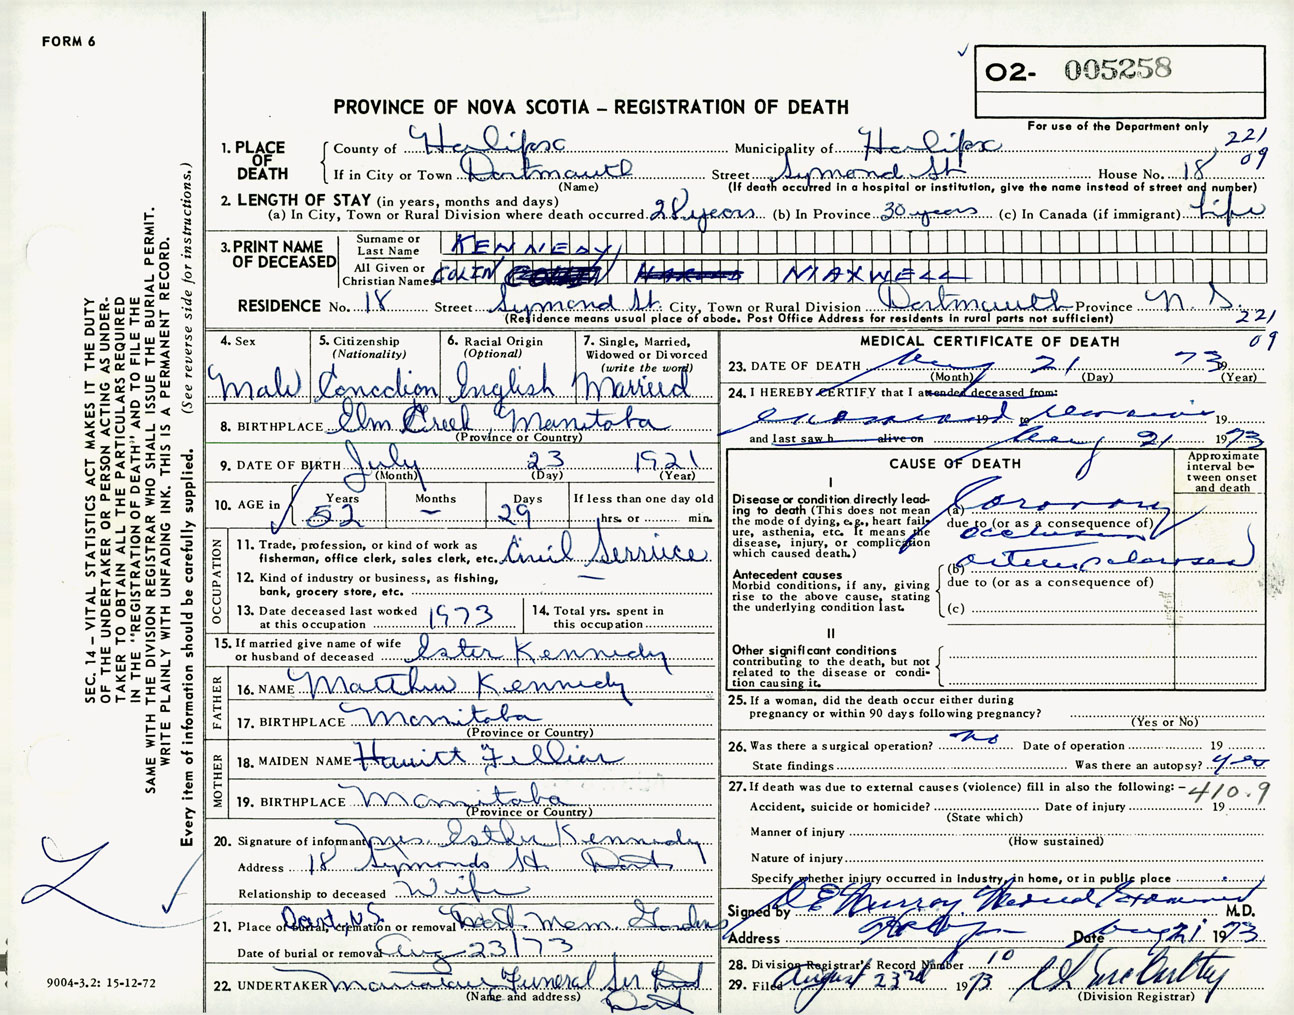 FORM 6
O2- 005258
PROVINCE OF NOVA SCOTIA – REGISTRATION OF DEATH
For use of the Department only
221
09
1. PLACE OF DEATH
County of Halifax Municipality of Halifax
If in City or Town Dartmouth Street Symond St House No. 18
(Name) (If death occurred in a hospital or institution, give the name instead of street and number)
2. LENGTH OF STAY (in years, months and days)
(a) In City, Town or Rural Division where death occurred 28 years (b) In Province 30 years (c) In Canada (if immigrant) Life
3. PRINT NAME OF DECEASED
Surname or Last Name KENNEDY
All Given or Christian Names COLIN MAXWELL
RESIDENCE No. 18 Street Symond St. City, Town or Rural Division Dartmouth Province N. S.
(Residence means usual place of abode. Post Office Address for residents in rural parts not sufficient)
221
09
4. Sex Male
5. Citizenship (Nationality) Canadian
6. Racial Origin (Optional) English
7. Single, Married, Widowed or Divorced (write the word) Married
8. BIRTHPLACE Elm Creek, Manitoba
(Province or Country)
9. DATE OF BIRTH July 23 1921
(Month) (Day) (Year)
10. AGE in Years Months Days If less than one day old
52 – 29 hrs. or min.
OCCUPATION
11. Trade, profession, or kind of work as
fisherman, office clerk, sales clerk, etc. Civil Serviice
12. Kind of industry or business, as fishing,
bank, grocery store, etc. –
13. Date deceased last worked at this occupation 1973
14. Total yrs. spent in this occupation
15. If married give name of wife
or husband of deceased Ester Kennedy
FATHER
16. NAME Matthew Kennedy
17. BIRTHPLACE Manitoba
(Province or Country)
MOTHER
18. MAIDEN NAME
19. BIRTHPLACE Manitoba
(Province or Country)
20. Signature of informant Mrs. Esther Kennedy
Address 18 Symonds St. Dart
Relationship to deceased Wife
21. Place of burial, cremation or removal Dart, N.S. Dart. Mem. Gardens
Date of burial or removal Aug 23/73
22. UNDERTAKER Funeral Ser
(Name and address) Dart
MEDICAL CERTIFICATE OF DEATH
23. DATE OF DEATH Aug 21 73
(Month) (Day) (Year)
24. I HEREBY CERTIFY that I attended deceased from:
examined remains 19 to 19
and last saw h alive on Aug 21 1973
CAUSE OF DEATH
Approximate interval between onset and death
I
Disease or condition directly lead-
ing to death (This does not mean
the mode of dying, e.g., heart fail-
ure, asthenia, etc. It means the
disease, injury, or complication
which caused death.)
(a) Coronary
due to (or as a consequence of)
occlusion
Antecedent causes
Morbid conditions, if any, giving
rise to the above cause, stating
the underlying condition last.
(b)
due to (or as a consequence of)
(c)
II
Other significant conditions
contributing to the death, but not
related to the disease or condi-
tion causing it.
25. If a woman, did the death occur either during
pregnancy or within 90 days following pregnancy?
(Yes or No)
26. Was there a surgical operation? no Date of operation 19
State findings Was there an autopsy? yes
27. If death was due to external causes (violence) fill in also the following: – 410.9
Accident, suicide or homicide? Date of injury 19
(State which)
Manner of injury
(How sustained)
Nature of injury
Specify whether injury occurred in Industry, in home, or in public place
Signed by D E Murray Medical Examiner M.D.
Address Date Aug 21 1973
28. Division Registrar's Record Number 10
29. Filed August 23rd 1973
(Division Registrar)
SEC. 14 – VITAL STATISTICS ACT MAKES IT THE DUTY
OF THE UNDERTAKER OR PERSON ACTING AS UNDER-
TAKER TO OBTAIN ALL THE PARTICULARS REQUIRED
IN THE "REGISTRATION OF DEATH" AND TO FILE THE
SAME WITH THE DIVISION REGISTRAR WHO SHALL ISSUE THE BURIAL PERMIT.
WRITE PLAINLY WITH UNFADING INK. THIS IS A PERMANENT RECORD.
Every item of information should be carefully supplied. (See reverse side for instructions.)
9004-3.2: 15-12-72